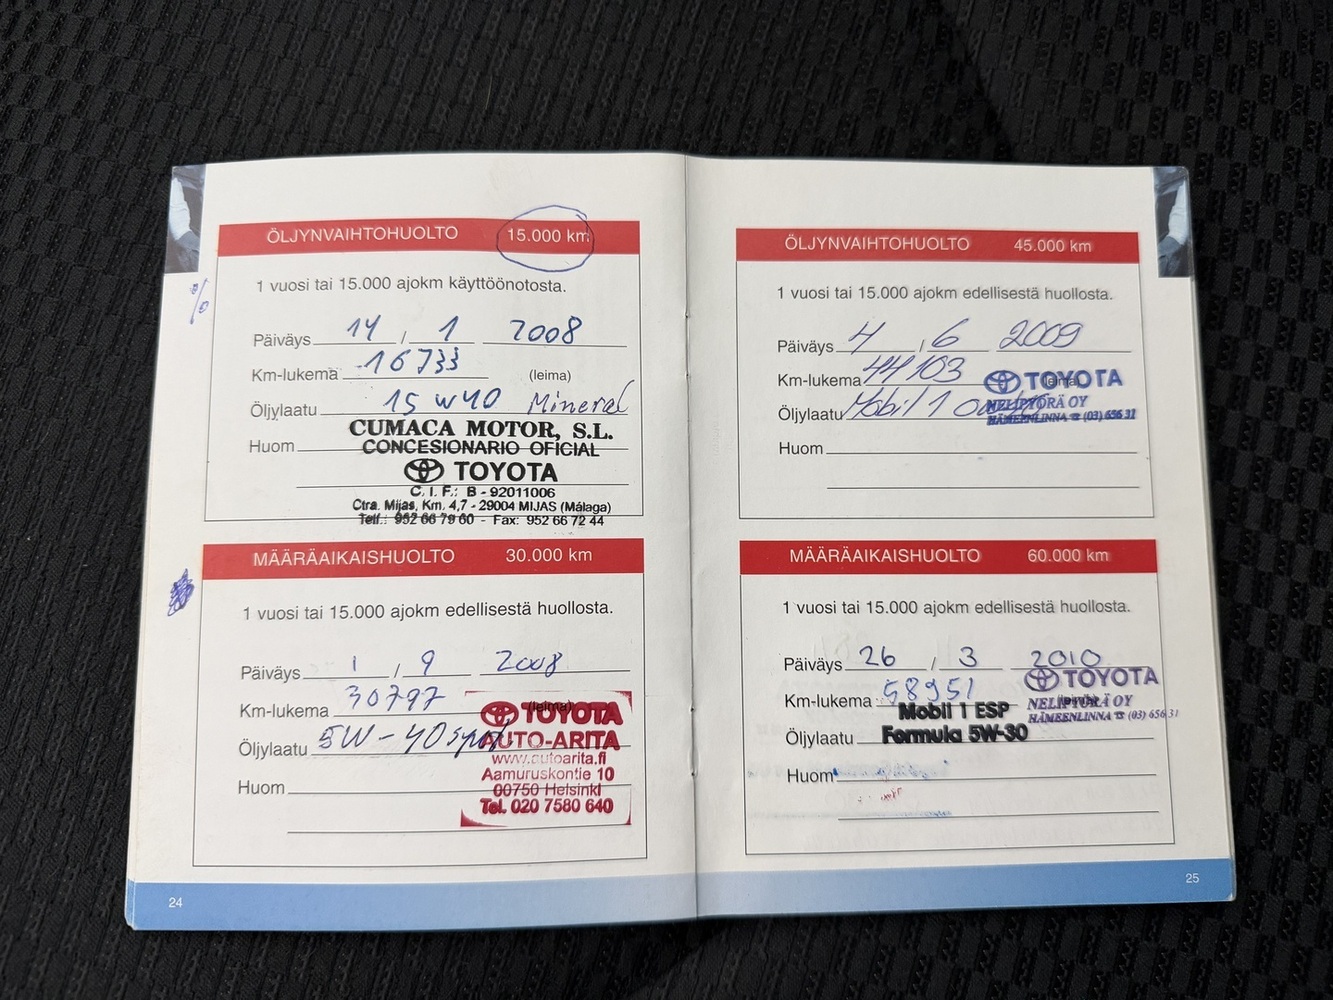 ÖLJYNVAIHTOHUOLTO 15.000 km
1 vuosi tai 15.000 ajokm käyttöönotosta.
Päiväys 14 / 1 2008
Km-lukema 16733 (leima)
Öljylaatu 15 W40 Mineral
Huom
CUMACA MOTOR, S.L.
CONCESIONARIO OFICIAL
TOYOTA
C. I. F.: B - 92011006
Ctra. Mijas, Km. 4,7 - 29004 MIJAS (Málaga)
Telf.: 952 66 79 60 - Fax: 952 66 72 44
MÄÄRÄAIKAISHUOLTO 30.000 km
1 vuosi tai 15.000 ajokm edellisestä huollosta.
Päiväys 1 / 9 2008
Km-lukema 30797 (leima)
Öljylaatu 5W-40
Huom
TOYOTA
AUTO-ARITA
www.autoarita.fi
Aamuruskontie 10
00750 Helsinki
Tel. 020 7580 640
24
ÖLJYNVAIHTOHUOLTO 45.000 km
1 vuosi tai 15.000 ajokm edellisestä huollosta.
Päiväys 4 / 6 2009
Km-lukema 44103
Öljylaatu Mobil 1
Huom
TOYOTA
NELIPYÖRÄ OY
HÄMEENLINNA ☎ (03) 656 31
MÄÄRÄAIKAISHUOLTO 60.000 km
1 vuosi tai 15.000 ajokm edellisestä huollosta.
Päiväys 26 / 3 2010
Km-lukema 58951
Öljylaatu Mobil 1 ESP
Formula 5W-30
Huom
TOYOTA
NELIPYÖRÄ OY
HÄMEENLINNA ☎ (03) 656 31
25